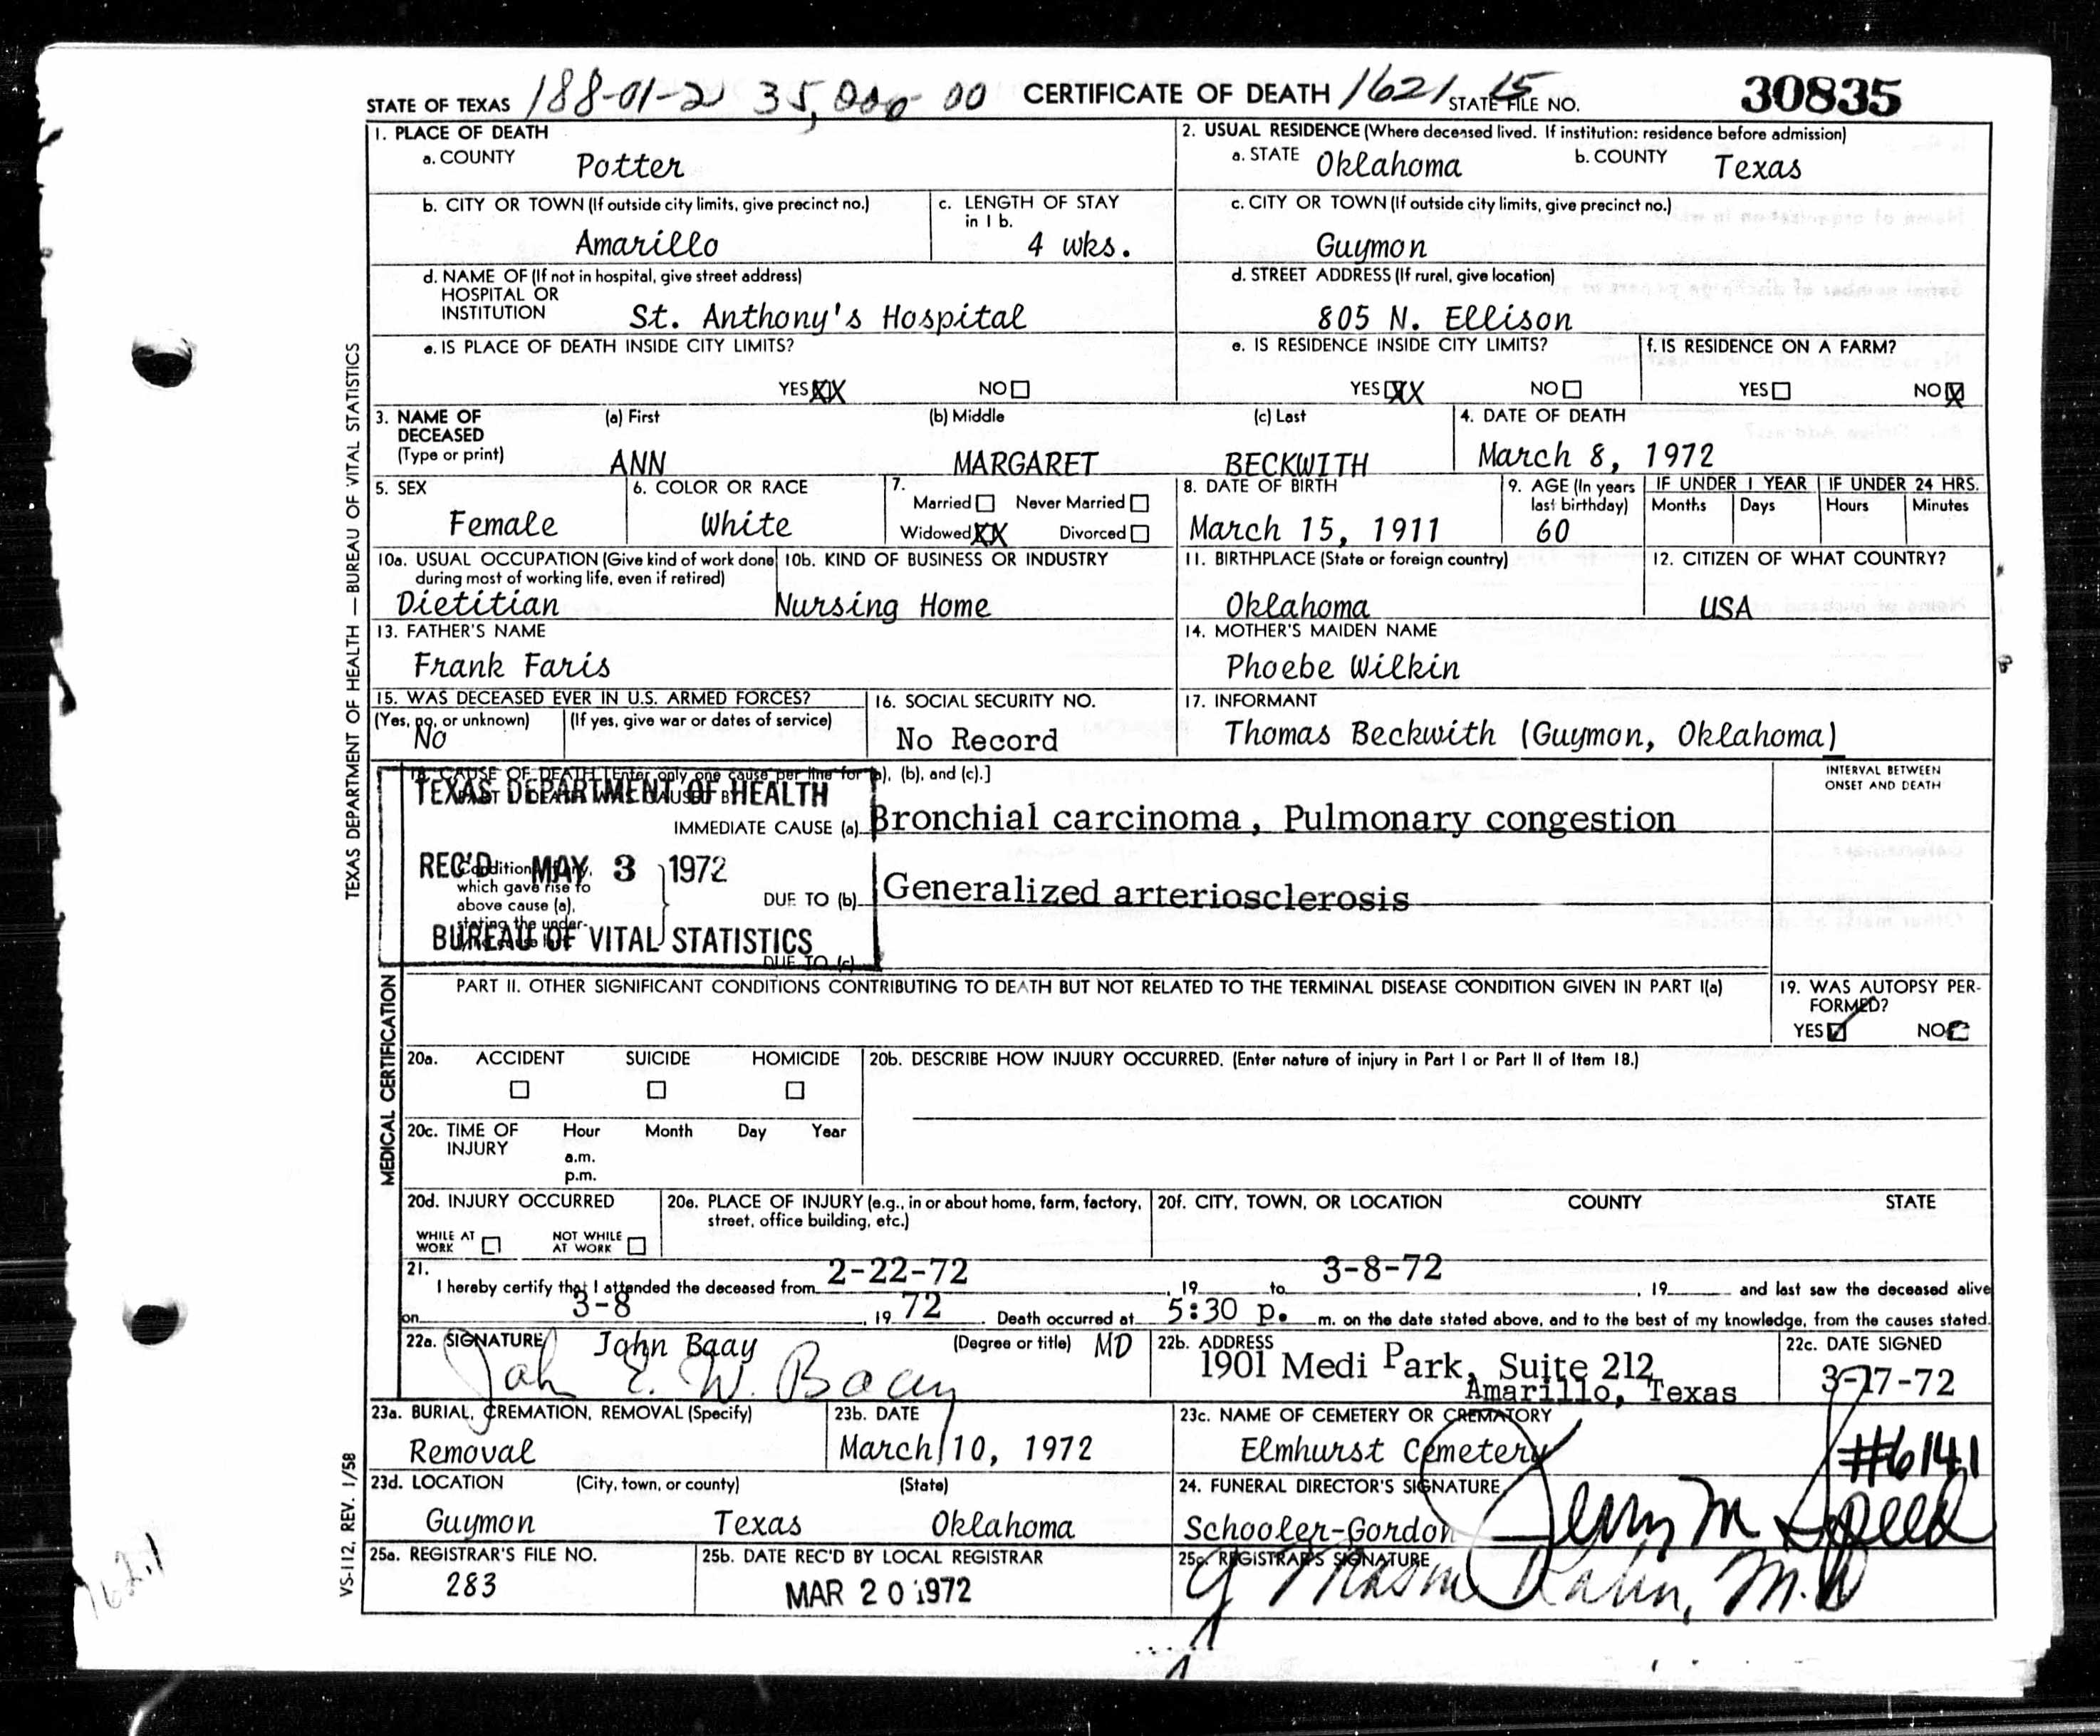 STATE OF TEXAS 188-01-2 35,000 00 CERTIFICATE OF DEATH 1621 15 STATE FILE NO. 30835
1. PLACE OF DEATH
a. COUNTY Potter
2. USUAL RESIDENCE (Where deceased lived. If institution: residence before admission)
a. STATE Oklahoma b. COUNTY Texas
b. CITY OR TOWN (If outside city limits, give precinct no.)
Amarillo
c. LENGTH OF STAY
in 1 b.
4 wks.
c. CITY OR TOWN (If outside city limits, give precinct no.)
Guymon
d. NAME OF (If not in hospital, give street address)
HOSPITAL OR
INSTITUTION St. Anthony's Hospital
d. STREET ADDRESS (If rural, give location)
805 N. Ellison
e. IS PLACE OF DEATH INSIDE CITY LIMITS?
YES XX NO
e. IS RESIDENCE INSIDE CITY LIMITS?
YES XX NO
f. IS RESIDENCE ON A FARM?
YES NO X
3. NAME OF
DECEASED
(Type or print)
(a) First (b) Middle (c) Last
ANN MARGARET BECKWITH
4. DATE OF DEATH
March 8, 1972
5. SEX
Female
6. COLOR OR RACE
White
7.
Married Never Married
Widowed XX Divorced
8. DATE OF BIRTH
March 15, 1911
9. AGE (In years
last birthday)
60
IF UNDER 1 YEAR IF UNDER 24 HRS.
Months Days Hours Minutes
10a. USUAL OCCUPATION (Give kind of work done
during most of working life, even if retired)
Dietitian
10b. KIND OF BUSINESS OR INDUSTRY
Nursing Home
11. BIRTHPLACE (State or foreign country)
Oklahoma
12. CITIZEN OF WHAT COUNTRY?
USA
13. FATHER'S NAME
Frank Faris
14. MOTHER'S MAIDEN NAME
Phoebe Wilkin
15. WAS DECEASED EVER IN U.S. ARMED FORCES?
(Yes, no, or unknown) (If yes, give war or dates of service)
No
16. SOCIAL SECURITY NO.
No Record
17. INFORMANT
Thomas Beckwith (Guymon, Oklahoma)
18. CAUSE OF DEATH [Enter only one cause per line for (a), (b), and (c).]
PART I. DEATH WAS CAUSED BY
TEXAS DEPARTMENT OF HEALTH
REC'D MAY 3 1972
BUREAU OF VITAL STATISTICS
IMMEDIATE CAUSE (a) Bronchial carcinoma, Pulmonary congestion
Conditions, if any,
which gave rise to
above cause (a),
stating the under-
lying cause last.
DUE TO (b) Generalized arteriosclerosis
DUE TO (c)
INTERVAL BETWEEN
ONSET AND DEATH
PART II. OTHER SIGNIFICANT CONDITIONS CONTRIBUTING TO DEATH BUT NOT RELATED TO THE TERMINAL DISEASE CONDITION GIVEN IN PART I(a)
19. WAS AUTOPSY PER-
FORMED?
YES NO
20a. ACCIDENT SUICIDE HOMICIDE
20b. DESCRIBE HOW INJURY OCCURRED. (Enter nature of injury in Part I or Part II of Item 18.)
20c. TIME OF
INJURY
Hour Month Day Year
a.m.
p.m.
20d. INJURY OCCURRED
WHILE AT
WORK
NOT WHILE
AT WORK
20e. PLACE OF INJURY (e.g., in or about home, farm, factory,
street, office building, etc.)
20f. CITY, TOWN, OR LOCATION COUNTY STATE
21.
I hereby certify that I attended the deceased from 2-22-72, 19 to 3-8-72, 19 and last saw the deceased alive
on 3-8, 19 72. Death occurred at 5:30 p. m. on the date stated above, and to the best of my knowledge, from the causes stated.
22a. SIGNATURE John Baay (Degree or title) MD
John E. W. Baay
22b. ADDRESS
1901 Medi Park, Suite 212
Amarillo, Texas
22c. DATE SIGNED
3-17-72
23a. BURIAL, CREMATION, REMOVAL (Specify)
Removal
23b. DATE
March 10, 1972
23c. NAME OF CEMETERY OR CREMATORY
Elmhurst Cemetery
#6141
23d. LOCATION (City, town, or county) (State)
Guymon Texas Oklahoma
24. FUNERAL DIRECTOR'S SIGNATURE
Schooler-Gordon Jerry M Speed
25a. REGISTRAR'S FILE NO.
283
25b. DATE REC'D BY LOCAL REGISTRAR
MAR 20 1972
25c. REGISTRAR'S SIGNATURE
G Mason Kahn, M.D
TEXAS DEPARTMENT OF HEALTH — BUREAU OF VITAL STATISTICS
MEDICAL CERTIFICATION
VS-112, REV. 1/58
162.1